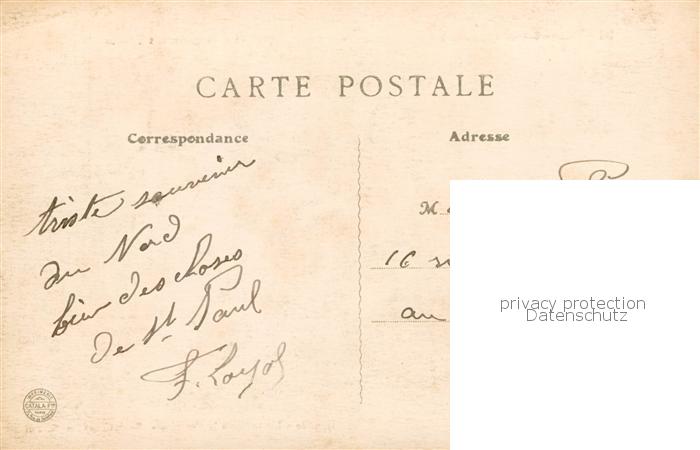 CARTE POSTALE
Correspondance
Adresse
triste souvenir
du Nord
bien des choses
de St Paul
F.
M
16
au
privacy protection
Datenschutz
IMPRIMERIE
CATALA Fres
PARIS